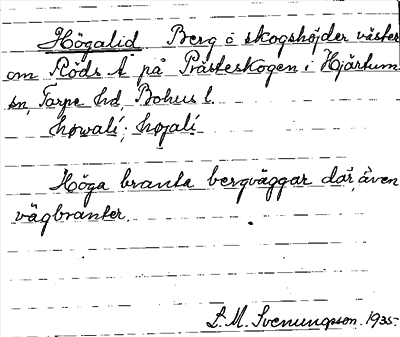 Högalid Berg o skogshöjder väster
om Röds Å på Prästeskogen i Hjärtum
sn, Torpe hd, Bohus l.
høwalí; højalí
Höga branta bergväggar där, även
vägbranter.
L. M. Svenungsson. 1935-